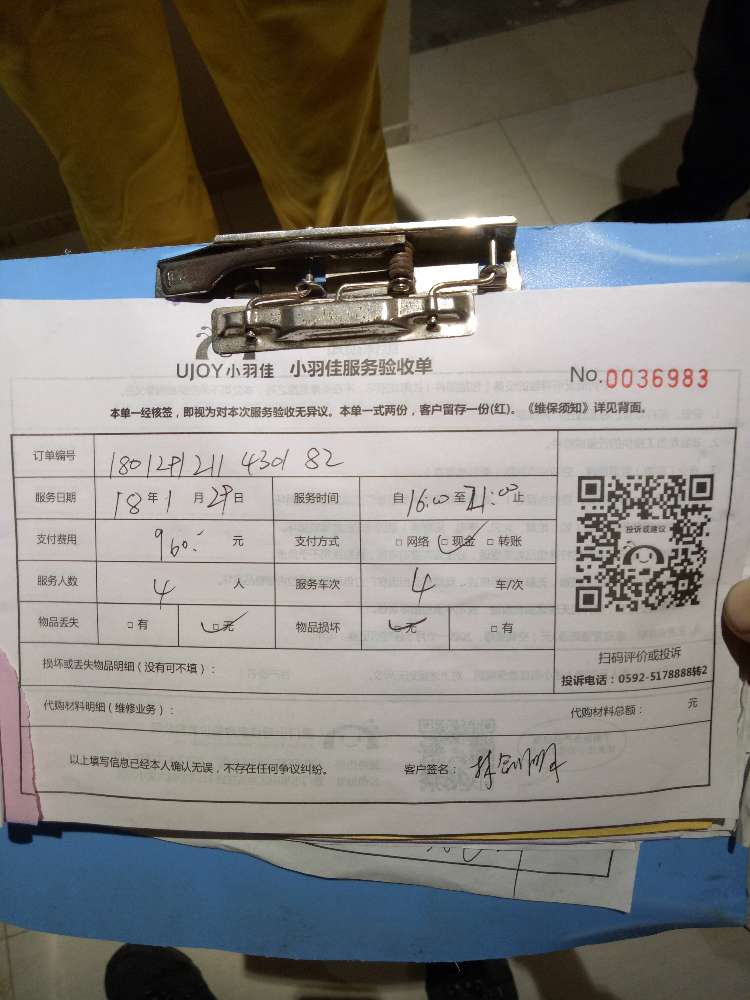 UJOY小羽佳 小羽佳服务验收单
No.0036983
本单一经核签，即视为对本次服务验收无异议。本单一式两份，客户留存一份(红)。《维保须知》详见背面。
订单编号 180129121143018​2
服务日期 18年1月29日 服务时间 自16:00至21:00止
支付费用 960.- 元 支付方式 □网络 □现金 □转账
服务人数 4 人 服务车次 4 车/次
物品丢失 □有 □无 物品损坏 □无 □有
投诉或建议
扫码评价或投诉
投诉电话：0592-5178888转2
损坏或丢失物品明细（没有可不填）：
代购材料明细（维修业务）： 代购材料总额： 元
以上填写信息已经本人确认无误，不存在任何争议纠纷。 客户签名：